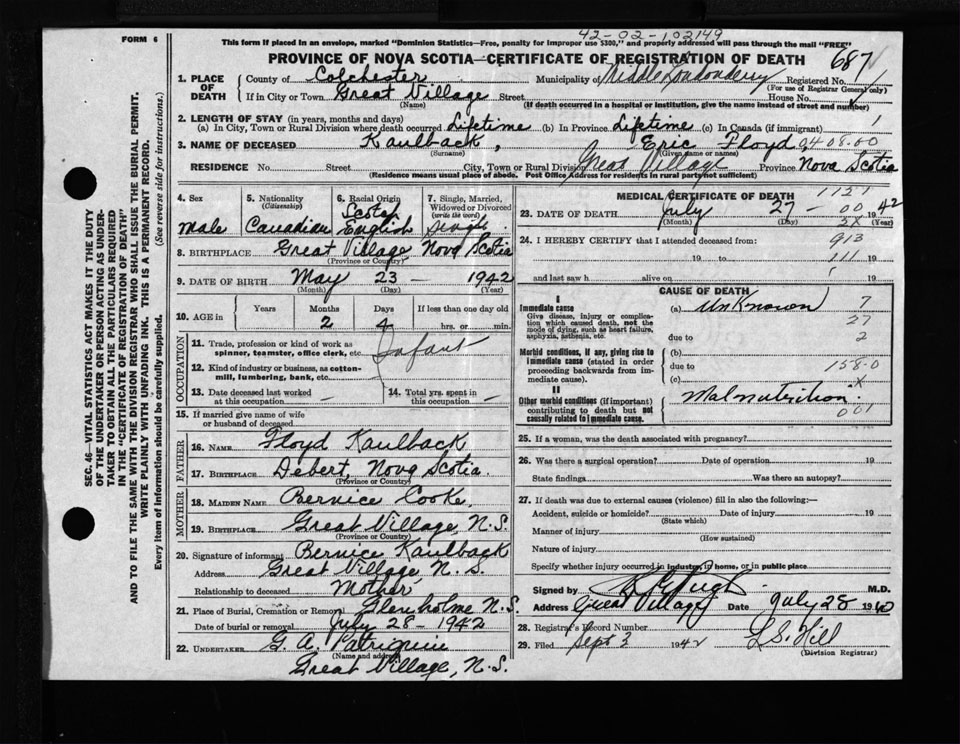 FORM 6
42-02-102149
This form if placed in an envelope, marked "Dominion Statistics—Free, penalty for improper use $300," and properly addressed will pass through the mail "FREE"
PROVINCE OF NOVA SCOTIA—CERTIFICATE OF REGISTRATION OF DEATH
687
SEC. 46—VITAL STATISTICS ACT MAKES IT THE DUTY
OF THE UNDERTAKER OR PERSON ACTING AS UNDER-
TAKER TO OBTAIN ALL THE PARTICULARS REQUIRED
IN THE "CERTIFICATE OF REGISTRATION OF DEATH"
AND TO FILE THE SAME WITH THE DIVISION REGISTRAR WHO SHALL ISSUE THE BURIAL PERMIT.
WRITE PLAINLY WITH UNFADING INK. THIS IS A PERMANENT RECORD.
Every item of information should be carefully supplied. (See reverse side for instructions.)
1. PLACE OF DEATH County of Colchester Municipality of Middle Londonderry Registered No.
(For use of Registrar General only)
If in City or Town Great Village Street House No.
(Name) (If death occurred in a hospital or institution, give the name instead of street and number)
2. LENGTH OF STAY (in years, months and days) 1
(a) In City, Town or Rural Division where death occurred Lifetime (b) In Province Lifetime (c) In Canada (if immigrant)
3. NAME OF DECEASED Kaulback, Eric Floyd, 9408.00
(Surname) (Given name or names)
RESIDENCE No. Street City, Town or Rural Division Great Village Province Nova Scotia
(Residence means usual place of abode. Post Office Address for residents in rural parts not sufficient)
4. Sex 5. Nationality (Citizenship) 6. Racial Origin 7. Single, Married, Widowed or Divorced (write the word)
Scotch
Male Canadian English Single
8. BIRTHPLACE Great Village Nova Scotia
(Province or Country)
9. DATE OF BIRTH May 23 — 1942
(Month) (Day) (Year)
10. AGE in Years Months Days If less than one day old
2 4 hrs. or min.
OCCUPATION
11. Trade, profession or kind of work as spinner, teamster, office clerk, etc. Infant
12. Kind of industry or business, as cotton-mill, lumbering, bank, etc.
13. Date deceased last worked at this occupation — 14. Total yrs. spent in this occupation —
15. If married give name of wife or husband of deceased
FATHER
16. NAME Floyd Kaulback
17. BIRTHPLACE Debert, Nova Scotia.
(Province or Country)
MOTHER
18. MAIDEN NAME Bernice Cooke,
19. BIRTHPLACE Great Village, N.S.
(Province or Country)
20. Signature of informant Bernice Kaulback
Address Great Village, N.S.
Relationship to deceased Mother,
21. Place of Burial, Cremation or Removal Glenholme N.S.
Date of burial or removal July 28 - 1942
22. UNDERTAKER G. A. Patriquin
(Name and address)
Great Village, N.S.
MEDICAL CERTIFICATE OF DEATH 1121
23. DATE OF DEATH July 27 - 00 1942
(Month) (Day) (Year)
24. I HEREBY CERTIFY that I attended deceased from: 913
19 to 111 19
and last saw h alive on 19
CAUSE OF DEATH
I
Immediate cause (a) Unknown 7
Give disease, injury or complication which caused death, not the mode of dying, such as heart failure, asphyxia, asthenia, etc. 27
due to 2
Morbid conditions, if any, giving rise to immediate cause (stated in order proceeding backwards from immediate cause). (b)
due to 158.0
(c) X
II
Other morbid conditions (if important) contributing to death but not causally related to immediate cause. Malnutrition
001
25. If a woman, was the death associated with pregnancy?
26. Was there a surgical operation? Date of operation 19
State findings Was there an autopsy?
27. If death was due to external causes (violence) fill in also the following:—
Accident, suicide or homicide? Date of injury 19
(State which)
Manner of injury
(How sustained)
Nature of injury
Specify whether injury occurred in industry, in home, or in public place
Signed by M.D.
Address Great Village Date July 28 19
28. Registrar's Record Number
29. Filed Sept 3 1942 L.S. Hill
(Division Registrar)